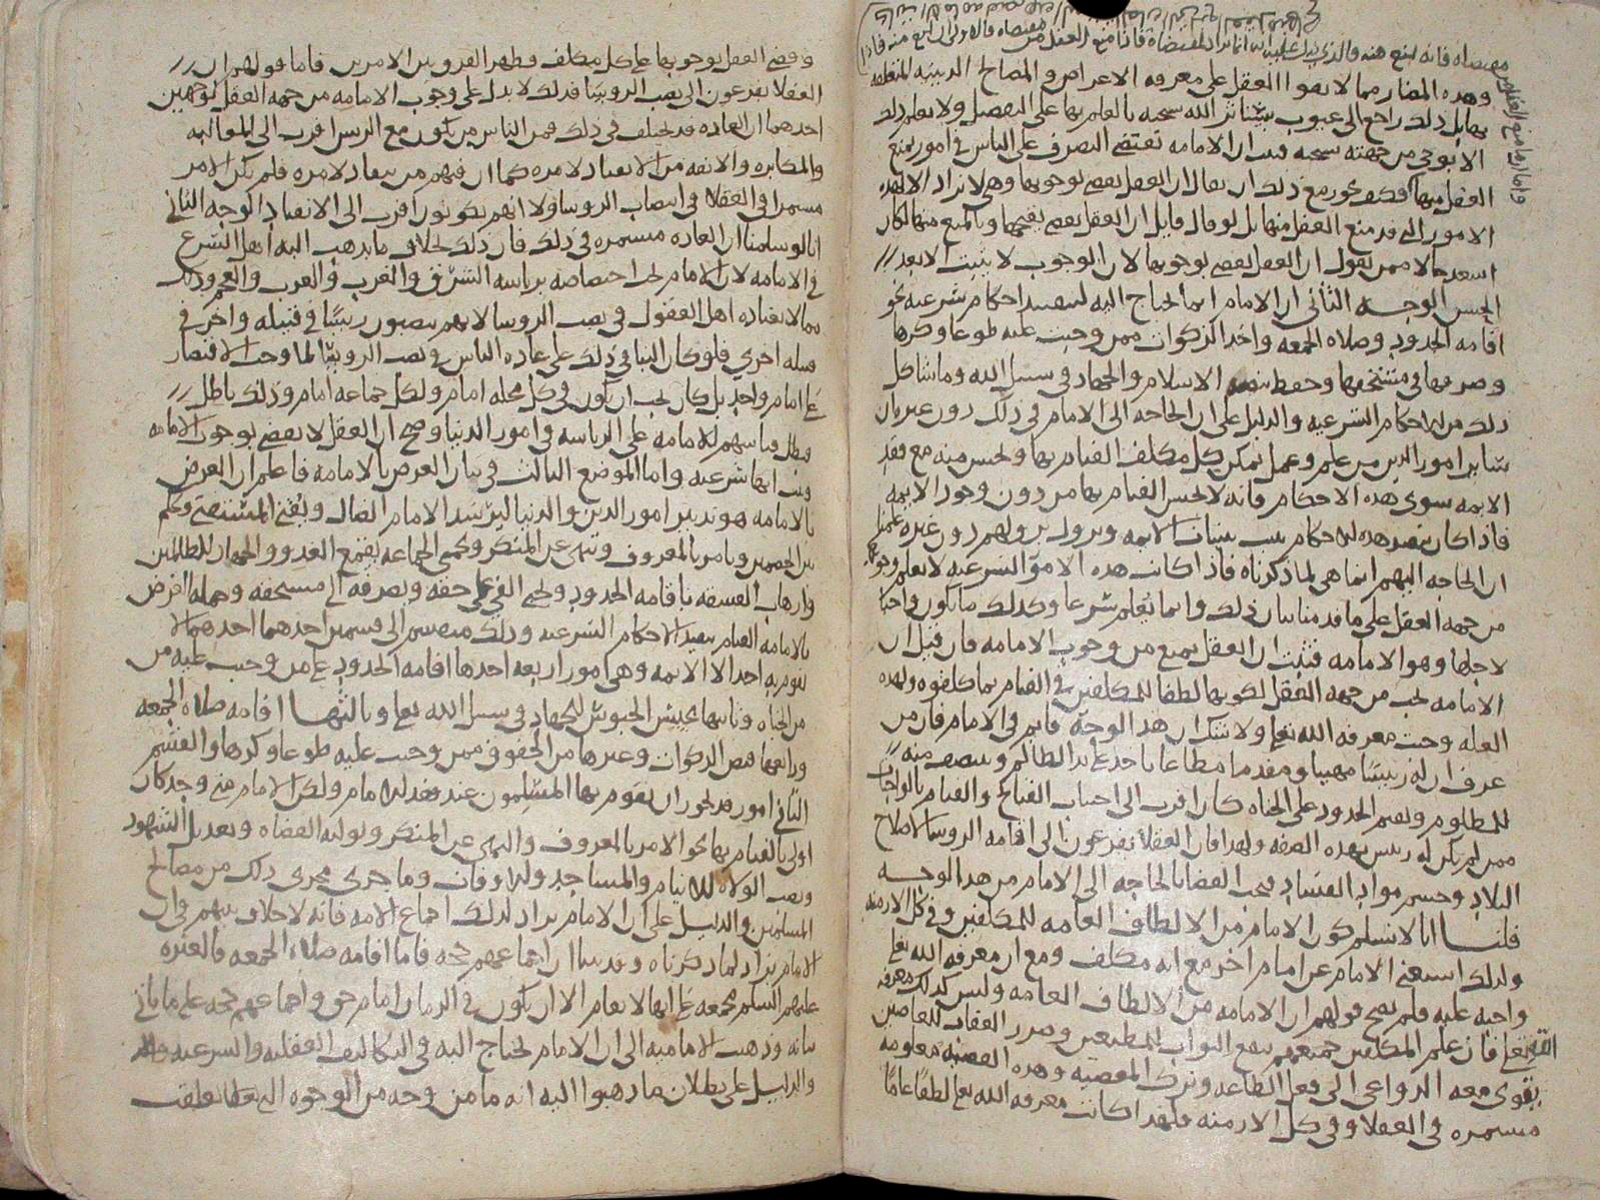 وهذه المضار مما لا يقوا العقل على معرفه الاعراض والمصالح الدينيه المتعلقه
بها بل ذلك راجع الى غيوب يستاثر الله سبحنه بالعلم بها على التفصيل ولا يعلم ذلك
الا بوحي من جهته سبحنه الامامه تقتضي التصرف على الناس في امور يمنع
العقل منها فكيف يجوز مع ذلك ان يقال ان العقل يقضي بوجوبها وهي لا تراد الا لهذه
الامور التي قد منع العقل منها بل لو قال قايل ان العقل يقضي بقبحها وبالمنع منها لكان
اسعد حالا ممن يقول ان العقل يقضي بوجوبها لان الوجوب لا يثبت الا بعد
الحسن الوجه الثاني ان الامام انما يحتاج اليه لتنفيذ احكام شرعيه نحو
اقامه الحدود وصلاه الجمعه واخذ الزكوات ممن وجبت عليه طوعا وكرها
وصرفها في مستحقها وحفظ الاسلام والجهاد في سبيل الله وما شاكل
ذلك من الاحكام الشرعيه والدليل على ان الحاجه الى الامام في ذلك دون غيره ان
سائر امور الدين من علم وعمل يمكن كل مكلف القيام بها ويحسن منه مع فقد
الايمه سوى هذه الاحكام فانه لا يحسن القيام بها من دون وجود الايمه
فاذا كان تنفيذ هذه الاحكام الايمه دون غيره علمنا
ان الحاجه اليهم انما هي لما ذكرناه فاذا كانت هذه الامور الشرعيه لا يعلم وجوبها
من جهه العقل على ما قدمنا بيان ذلك وانما تعلم شرعا وكذلك ما يكون واجبا
لاجلها وهو الامامه فثبت ان العقل يمنع من وجوب الامامه فان قيل ان
الامامه تجب من جهه العقل لكونها لطفا للمكلفين في القيام بما كلفوه ولهذه
العله وجبت معرفه الله تعالى ولا شك ان هذا الوجه قايم في الامام فان من
عرف ان له رييسا مهيبا ومقدما مطاعا ياخذ على يد الظالم وينتصف منه
للمظلوم ويقيم الحدود على الجناه كان اقرب الى اجتناب القبائح والقيام بالواجبات
ممن لم يكن له رييس بهذه الصفه ولهذا فان العقلا يفزعون الى اقامه الروسا لاصلاح
البلاد وحسم مواد الفساد فيجب القضا بالحاجه الى الامام من هذا الوجه
قلنا انا لا نسلم كون الامام من الالطاف العامه للمكلفين وفي كل الازمنه
ولذلك استغنى الامام عن امام اخر مع انه مكلف ومع ان معرفه الله تعالى
واجبه عليه فلم يصح قولهم ان الامامه من الالطاف العامه وليس كذلك معرفه
الله تعالى فان علم المكلفين جميعهم بنفع الثواب للمطيعين وضرر العقاب للعاصين
يقوي معه الدواعي الى فعل الطاعه وترك المعصيه وهذه القضيه معلومه
مستمره في العقلا وفي كل الازمنه فلهذا كانت معرفه الله تعالى لطفا عاما
وقضى العقل بوجوبها على كل مكلف فظهر الفرق بين الامرين فاما قولهم ان
العقلا يفزعون الى نصب الروسا فذلك لا يدل على وجوب الامامه من جهه العقل لوجهين
احدهما ان العاده قد تختلف في ذلك فمن الناس من يكون مع الرييس اقرب الى المغالبه
والمكابره والانفه من الانقياد لامره كما ان فيهم من ينقاد لامره فلم يكن الامر
مستمرا في العقلا في انتصاب الروسا ولا انهم يكونون اقرب الى الانقياد الوجه الثاني
انا لو سلمنا ان العاده مستمره في ذلك فان ذلك بخلاف ما يذهب اليه اهل الشرع
في الامامه لان الامام يجب اختصاصه برياسه الشرق والغرب والعرب والعجم وذلك
مما لا يعتاده اهل العقول في نصب الروسا لانهم ينصبون رييسا في قبيله واخر في
قبيله اخرى فلو كان البنا في ذلك على عاده الناس في نصب الروسا لما وجب الاقتصار
على امام واحد بل كان يجب ان يكون في كل محله امام ولكل جماعه امام وذلك باطل
فبطل قياسهم للامامه على الرياسه في امور الدنيا وصح ان العقل لا يقضي بوجوب الامامه
وثبت انها شرعيه واما الموضع الثالث في بيان الغرض بالامامه فاعلم ان الغرض
بالامامه هو تدبير امور الدين والدنيا ليرشد الامام الضال ويفتي المستفتي ويحكم
بين الخصمين ويامر بالمعروف وينهى عن المنكر ويحمي الجماعه بقمع العدو والجهاد للظالمين
وارهاب الفسقه باقامه الحدود ويجبي الفي على حقه ويصرفه الى مستحقه وجمله الغرض
بالامامه القيام بتنفيذ الاحكام الشرعيه وذلك منقسم الى قسمين احدهما احدهما لا
يقوم به احد الا الايمه وهي امور اربعه احدها اقامه الحدود على من وجبت عليه من
من الجناه وثانيها تجييش الجيوش للجهاد في سبيل الله تعالى وثالثها اقامه صلاه الجمعه
ورابعها قبض الزكوات وغيرها من الحقوق ممن وجبت عليه طوعا وكرها والقسم
الثاني امور قد يجوز ان يقوم بها المسلمون عند فقد الامام ولكن الامام متى وجد كان
اولى بالقيام بها نحو الامر بالمعروف والنهي عن المنكر وتوليه القضاه وتعديل الشهود
ونصب الولاه للايتام والمساجد والاوقاف وما جرى مجرى ذلك من مصالح
المسلمين والدليل على ان الامام يراد لذلك اجماع الامه فانه لا خلاف بينهم في ان
الامام يراد لما ذكرناه وقد بينا ان اجماعهم حجه فاما اقامه صلاه الجمعه فالعتره
عليهم السلم مجمعه على انها لا تقام الا ان يكون في الزمان امام حق واجماعهم حجه على ما ياتي
بيانه وذهبت الاماميه الى ان الامام يحتاج اليه في التكاليف العقليه والشرعيه
والدليل على بطلان ما ذهبوا اليه انه ما من وجه من الوجوه التي تعلقت